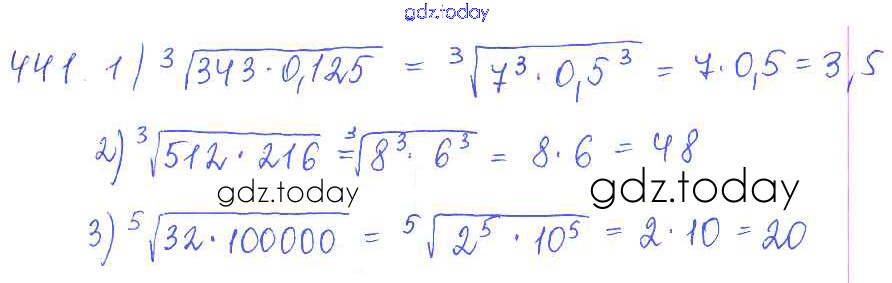 gdz.today
441. 1) ³√(343·0,125) = ³√(7³·0,5³) = 7·0,5 = 3,5
2) ³√(512·216) = ³√(8³·6³) = 8·6 = 48
gdz.today gdz.today
3) ⁵√(32·100000) = ⁵√(2⁵·10⁵) = 2·10 = 20